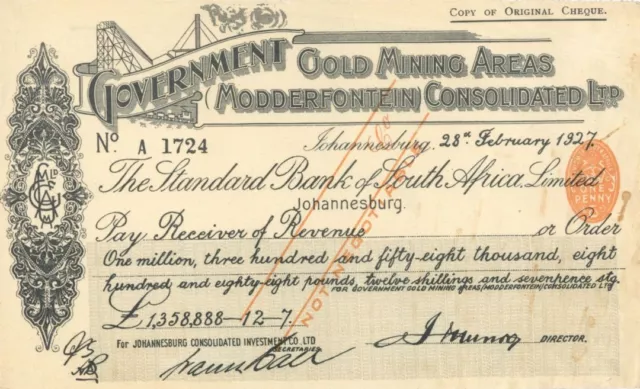 COPY OF ORIGINAL CHEQUE.
GOVERNMENT GOLD MINING AREAS
(MODDERFONTEIN) CONSOLIDATED LTD
No A 1724
Johannesburg, 28th February 1927.
The Standard Bank of South Africa, Limited.
Johannesburg.
ONE PENNY
Pay Receiver of Revenue or Order
One million, three hundred and fifty-eight thousand, eight
hundred and eighty-eight pounds, twelve shillings and sevenpence stg.
& Co
NOT NEGOTIABLE
FOR GOVERNMENT GOLD MINING AREAS (MODDERFONTEIN) CONSOLIDATED LTD
£ 1,358,888-12-7.
For JOHANNESBURG CONSOLIDATED INVESTMENT CO. LTD
SECRETARIES
DIRECTOR.